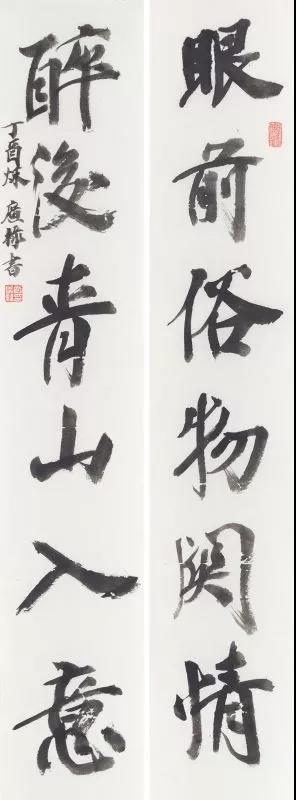 眼前俗物関情
醉後青山入意
丁酉秋 廣梅書